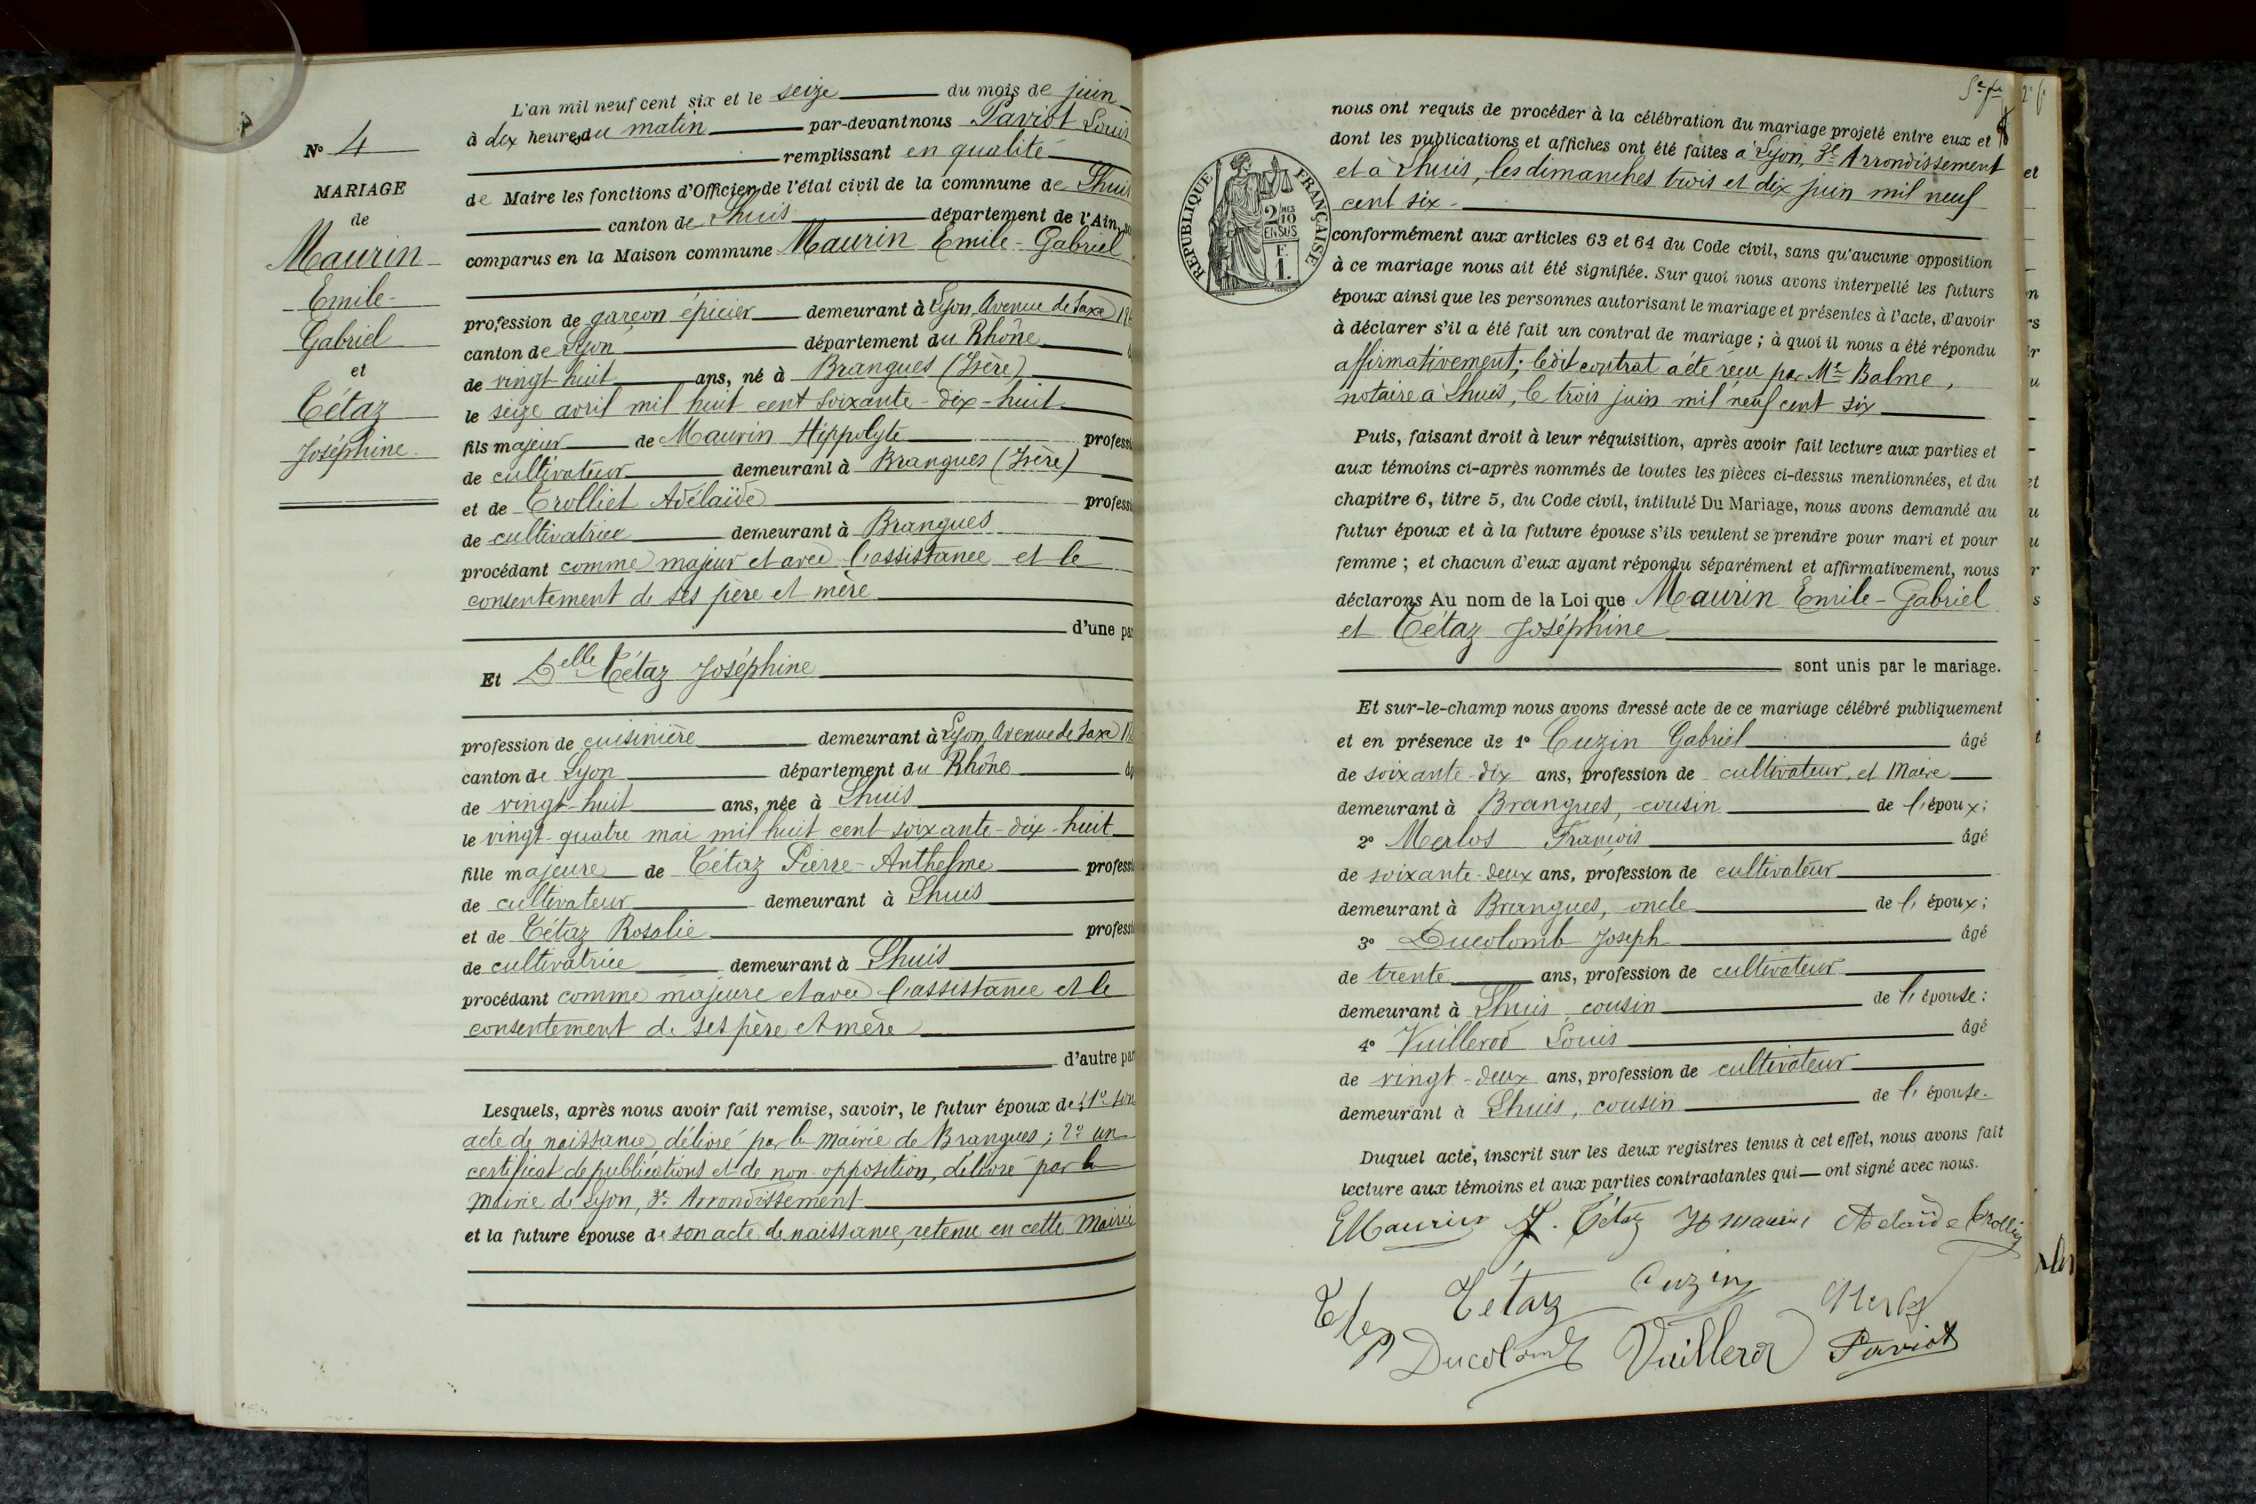 N° 4
MARIAGE
de
Maurin
Emile-
Gabriel
et
Tétaz
Joséphine
L'an mil neuf cent six et le seize du mois de juin
à dix heures du matin par-devant nous Paviot Louis
remplissant en qualité
de Maire les fonctions d'Officier de l'état civil de la commune de Lhuis
canton de Lhuis département de l'Ain,
comparus en la Maison commune Maurin Emile-Gabriel
profession de garçon épicier demeurant à Lyon, Avenue de Saxe
canton de Lyon département du Rhône
de vingt-huit ans, né à Brangues (Isère)
le seize avril mil huit cent soixante-dix-huit
fils majeur de Maurin Hippolyte professi
de cultivateur demeurant à Brangues (Isère)
et de Trolliet Adélaïde professi
de cultivatrice demeurant à Brangues
procédant comme majeur et avec l'assistance et le
consentement de ses père et mère
d'une par
Et Delle Tétaz Joséphine
profession de cuisinière demeurant à Lyon, Avenue de Saxe
canton de Lyon département du Rhône
de vingt-huit ans, née à Lhuis
le vingt-quatre mai mil huit cent soixante-dix-huit
fille majeure de Tétaz Pierre-Anthelme professi
de cultivateur demeurant à Lhuis
et de Tétaz Rosalie professi
de cultivatrice demeurant à Lhuis
procédant comme majeure et avec l'assistance et le
consentement de ses père et mère
d'autre par
Lesquels, après nous avoir fait remise, savoir, le futur époux de: 1° son
acte de naissance, délivré par la mairie de Brangues; 2° un
certificat de publications et de non-opposition, délivré par la
mairie de Lyon, 3e Arrondissement
et la future épouse de son acte de naissance, retenu en cette Mairie
REPUBLIQUE FRANÇAISE
2/10
EN SUS
F.
1.
nous ont requis de procéder à la célébration du mariage projeté entre eux et
dont les publications et affiches ont été faites à Lyon, 3e Arrondissement
et à Lhuis, les dimanches trois et dix juin mil neuf
cent six.
conformément aux articles 63 et 64 du Code civil, sans qu'aucune opposition
à ce mariage nous ait été signifiée. Sur quoi nous avons interpellé les futurs
époux ainsi que les personnes autorisant le mariage et présentes à l'acte, d'avoir
à déclarer s'il a été fait un contrat de mariage; à quoi il nous a été répondu
affirmativement; ledit contrat a été reçu par Me Balme,
notaire à Lhuis, le trois juin mil neuf cent six
Puis, faisant droit à leur réquisition, après avoir fait lecture aux parties et
aux témoins ci-après nommés de toutes les pièces ci-dessus mentionnées, et du
chapitre 6, titre 5, du Code civil, intitulé Du Mariage, nous avons demandé au
futur époux et à la future épouse s'ils veulent se prendre pour mari et pour
femme; et chacun d'eux ayant répondu séparément et affirmativement, nous
déclarons Au nom de la Loi que Maurin Emile-Gabriel
et Tétaz Joséphine
sont unis par le mariage.
Et sur-le-champ nous avons dressé acte de ce mariage célébré publiquement
et en présence de 1° Cuzin Gabriel âgé
de soixante-dix ans, profession de cultivateur, et Maire
demeurant à Brangues, cousin de l'époux;
2° Merlos François âgé
de soixante-deux ans, profession de cultivateur
demeurant à Brangues, oncle de l'époux;
3° Ducolomb Joseph âgé
de trente ans, profession de cultivateur
demeurant à Lhuis, cousin de l'épouse:
4° Vuillerod Louis âgé
de vingt-deux ans, profession de cultivateur
demeurant à Lhuis, cousin de l'épouse.
Duquel acte, inscrit sur les deux registres tenus à cet effet, nous avons fait
lecture aux témoins et aux parties contractantes qui ont signé avec nous.
E Maurin J. Tétaz H maurin Adelaïde Trolliet
Tétaz Cuzin Merlos
Ducolomb Vuillerod Paviot